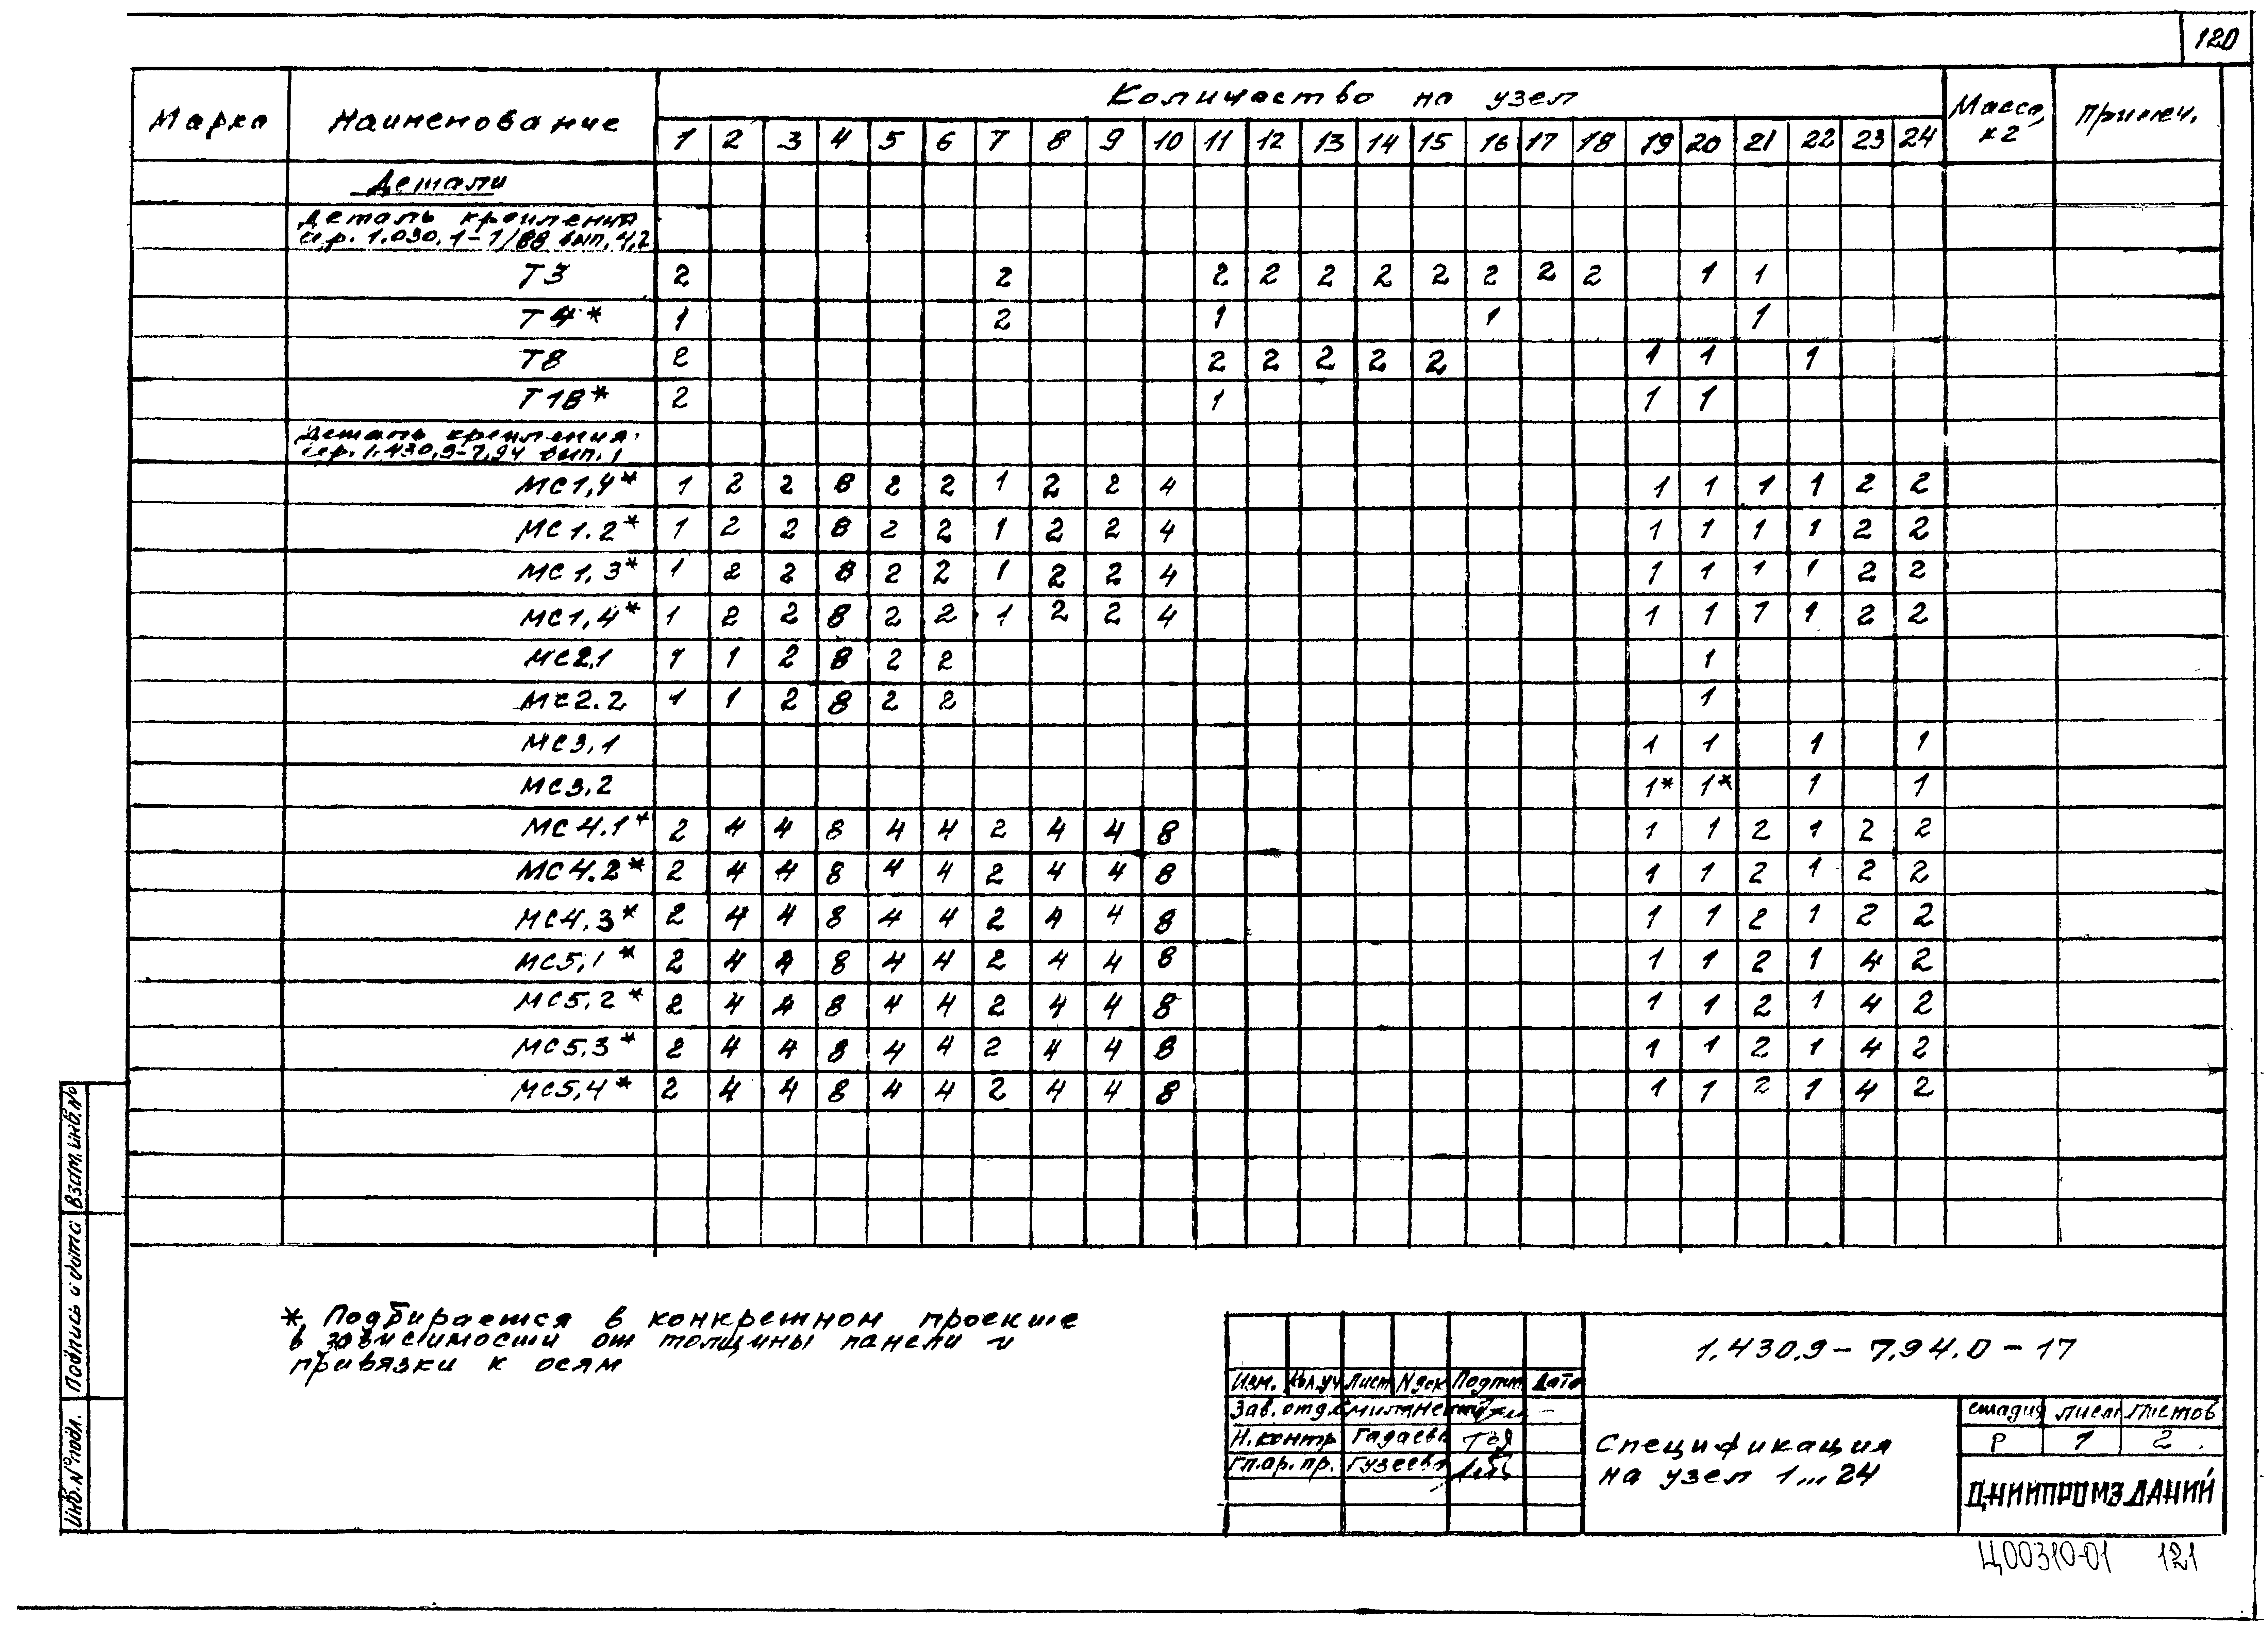 120
Марка Наименование Количество на узел Масса, кг Примеч.
1 2 3 4 5 6 7 8 9 10 11 12 13 14 15 16 17 18 19 20 21 22 23 24
Детали
Деталь крепления
сер. 1.030.1-1/88 вып. 4,2
Т3 2 2 2 2 2 2 2 2 2 2 1 1
Т4* 1 2 1 1 1
Т8 2 2 2 2 2 2 1 1 1
Т18* 2 1 1 1
Деталь крепления
сер. 1.430.9-7.94 вып. 1
МС1,4* 1 2 2 8 2 2 1 2 2 4 1 1 1 1 2 2
МС1.2* 1 2 2 8 2 2 1 2 2 4 1 1 1 1 2 2
МС1,3* 1 2 2 8 2 2 1 2 2 4 1 1 1 1 2 2
МС1,4* 1 2 2 8 2 2 1 2 2 4 1 1 1 1 2 2
МС2.1 1 1 2 8 2 2 1
МС2.2 1 1 2 8 2 2 1
МС3,1 1 1 1 1
МС3,2 1* 1* 1 1
МС4.1* 2 4 4 8 4 4 2 4 4 8 1 1 2 1 2 2
МС4.2* 2 4 4 8 4 4 2 4 4 8 1 1 2 1 2 2
МС4,3* 2 4 4 8 4 4 2 4 4 8 1 1 2 1 2 2
МС5,1* 2 4 4 8 4 4 2 4 4 8 1 1 2 1 4 2
МС5,2* 2 4 4 8 4 4 2 4 4 8 1 1 2 1 4 2
МС5,3* 2 4 4 8 4 4 2 4 4 8 1 1 2 1 4 2
МС5,4* 2 4 4 8 4 4 2 4 4 8 1 1 2 1 4 2
* Подбирается в конкретном проекте
в зависимости от толщины панели и
привязки к осям
Взам. инв. №
Подпись и дата
Инв. № подл.
1.430.9-7.94.0-17
Изм. Кол.уч Лист N док Подпит Дата
Зав. отд.
Н.контр Гадаева
Гл.ар.пр. Гузеева
Спецификация
на узел 1...24
стадия лист листов
Р 1 2
ЦНИИПРОМЗДАНИЙ
Ц00310-01 121